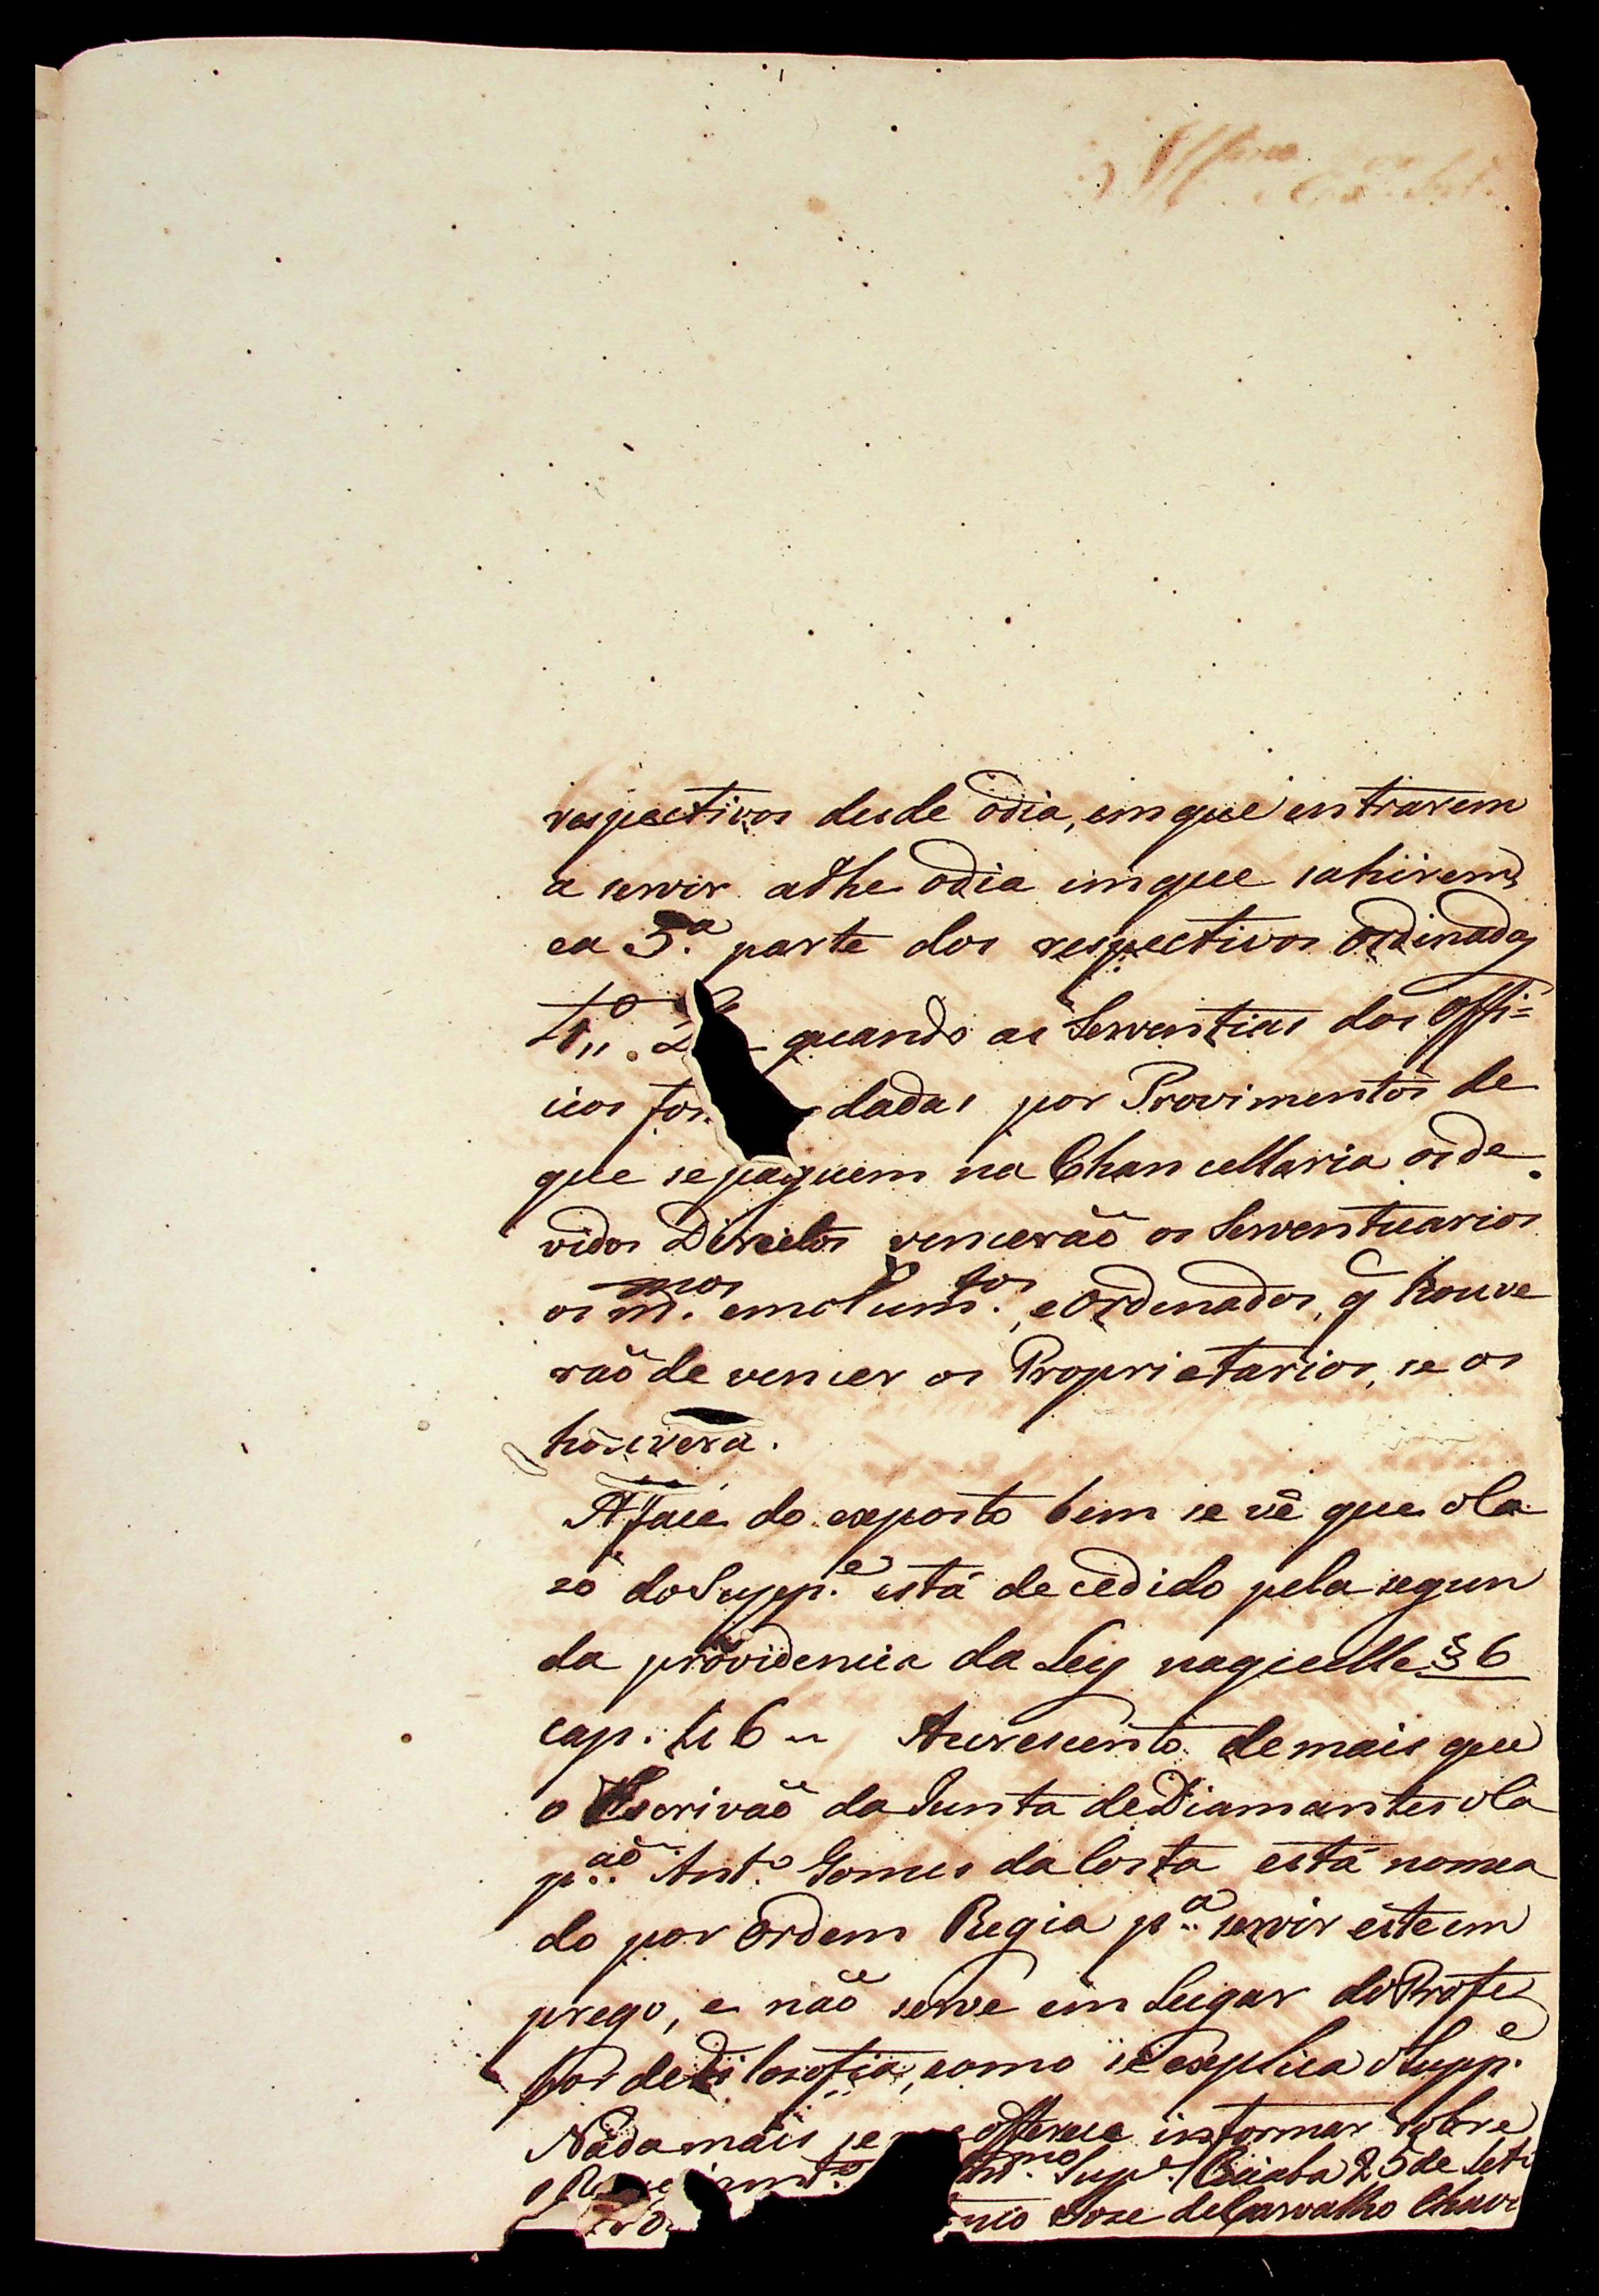 respectivos desde odia, emque entrarem
a servir athe odia emque sahirem,
ea 3.ª parte dos respectivos Ordinados
quando as Serventias dos Offi=
cios dadas por Provimentos de
que sepaguem na Chancellaria osde
vidos Direitos vencerão os Serventuarios
os m.mos emolum.tos, eOrdenados, q houve
rão de vencer os Proprietarios, se os
houvera.
Aface do exposto bem se vê que oCa
zo doSupp.e está decedido pela segun
da providencia da Ley naquelle § 6
cap. 46 Acrescento demais que
o Escrivão daJunta deDiamantes oCa
p.ão Ant.o Gomes daCosta está nomea
do por Ordem Regia p.a servir este em
prego, e não serve em Lugar doProfe
sor deFilosofia, como se explica oSupp.e
Nada mais se offerece informar sobre
o Sup.e Cuiaba 25 de Set
Joze deCarvalho Chav